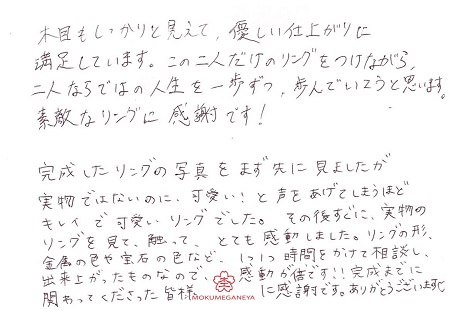 木目もしっかりと見えて、優しい仕上がりに
満足しています。この二人だけのリングをつけながら、
二人ならではの人生を一歩ずつ、歩んでいこうと思います。
素敵なリングに感謝です!
完成したリングの写真をまず先に見ましたが
実物ではないのに、可愛い!と声をあげてしまうほど
キレイで可愛いリングでした。その後すぐに、実物の
リングを見て、触って、とても感動しました。リングの形、
金属の色や宝石の色など、1つ1つ時間をかけて相談し、
出来上がったものなので、感動が倍です!!完成までに
関わってくださった皆様に感謝です。ありがとうございました
MOKUMEGANEYA